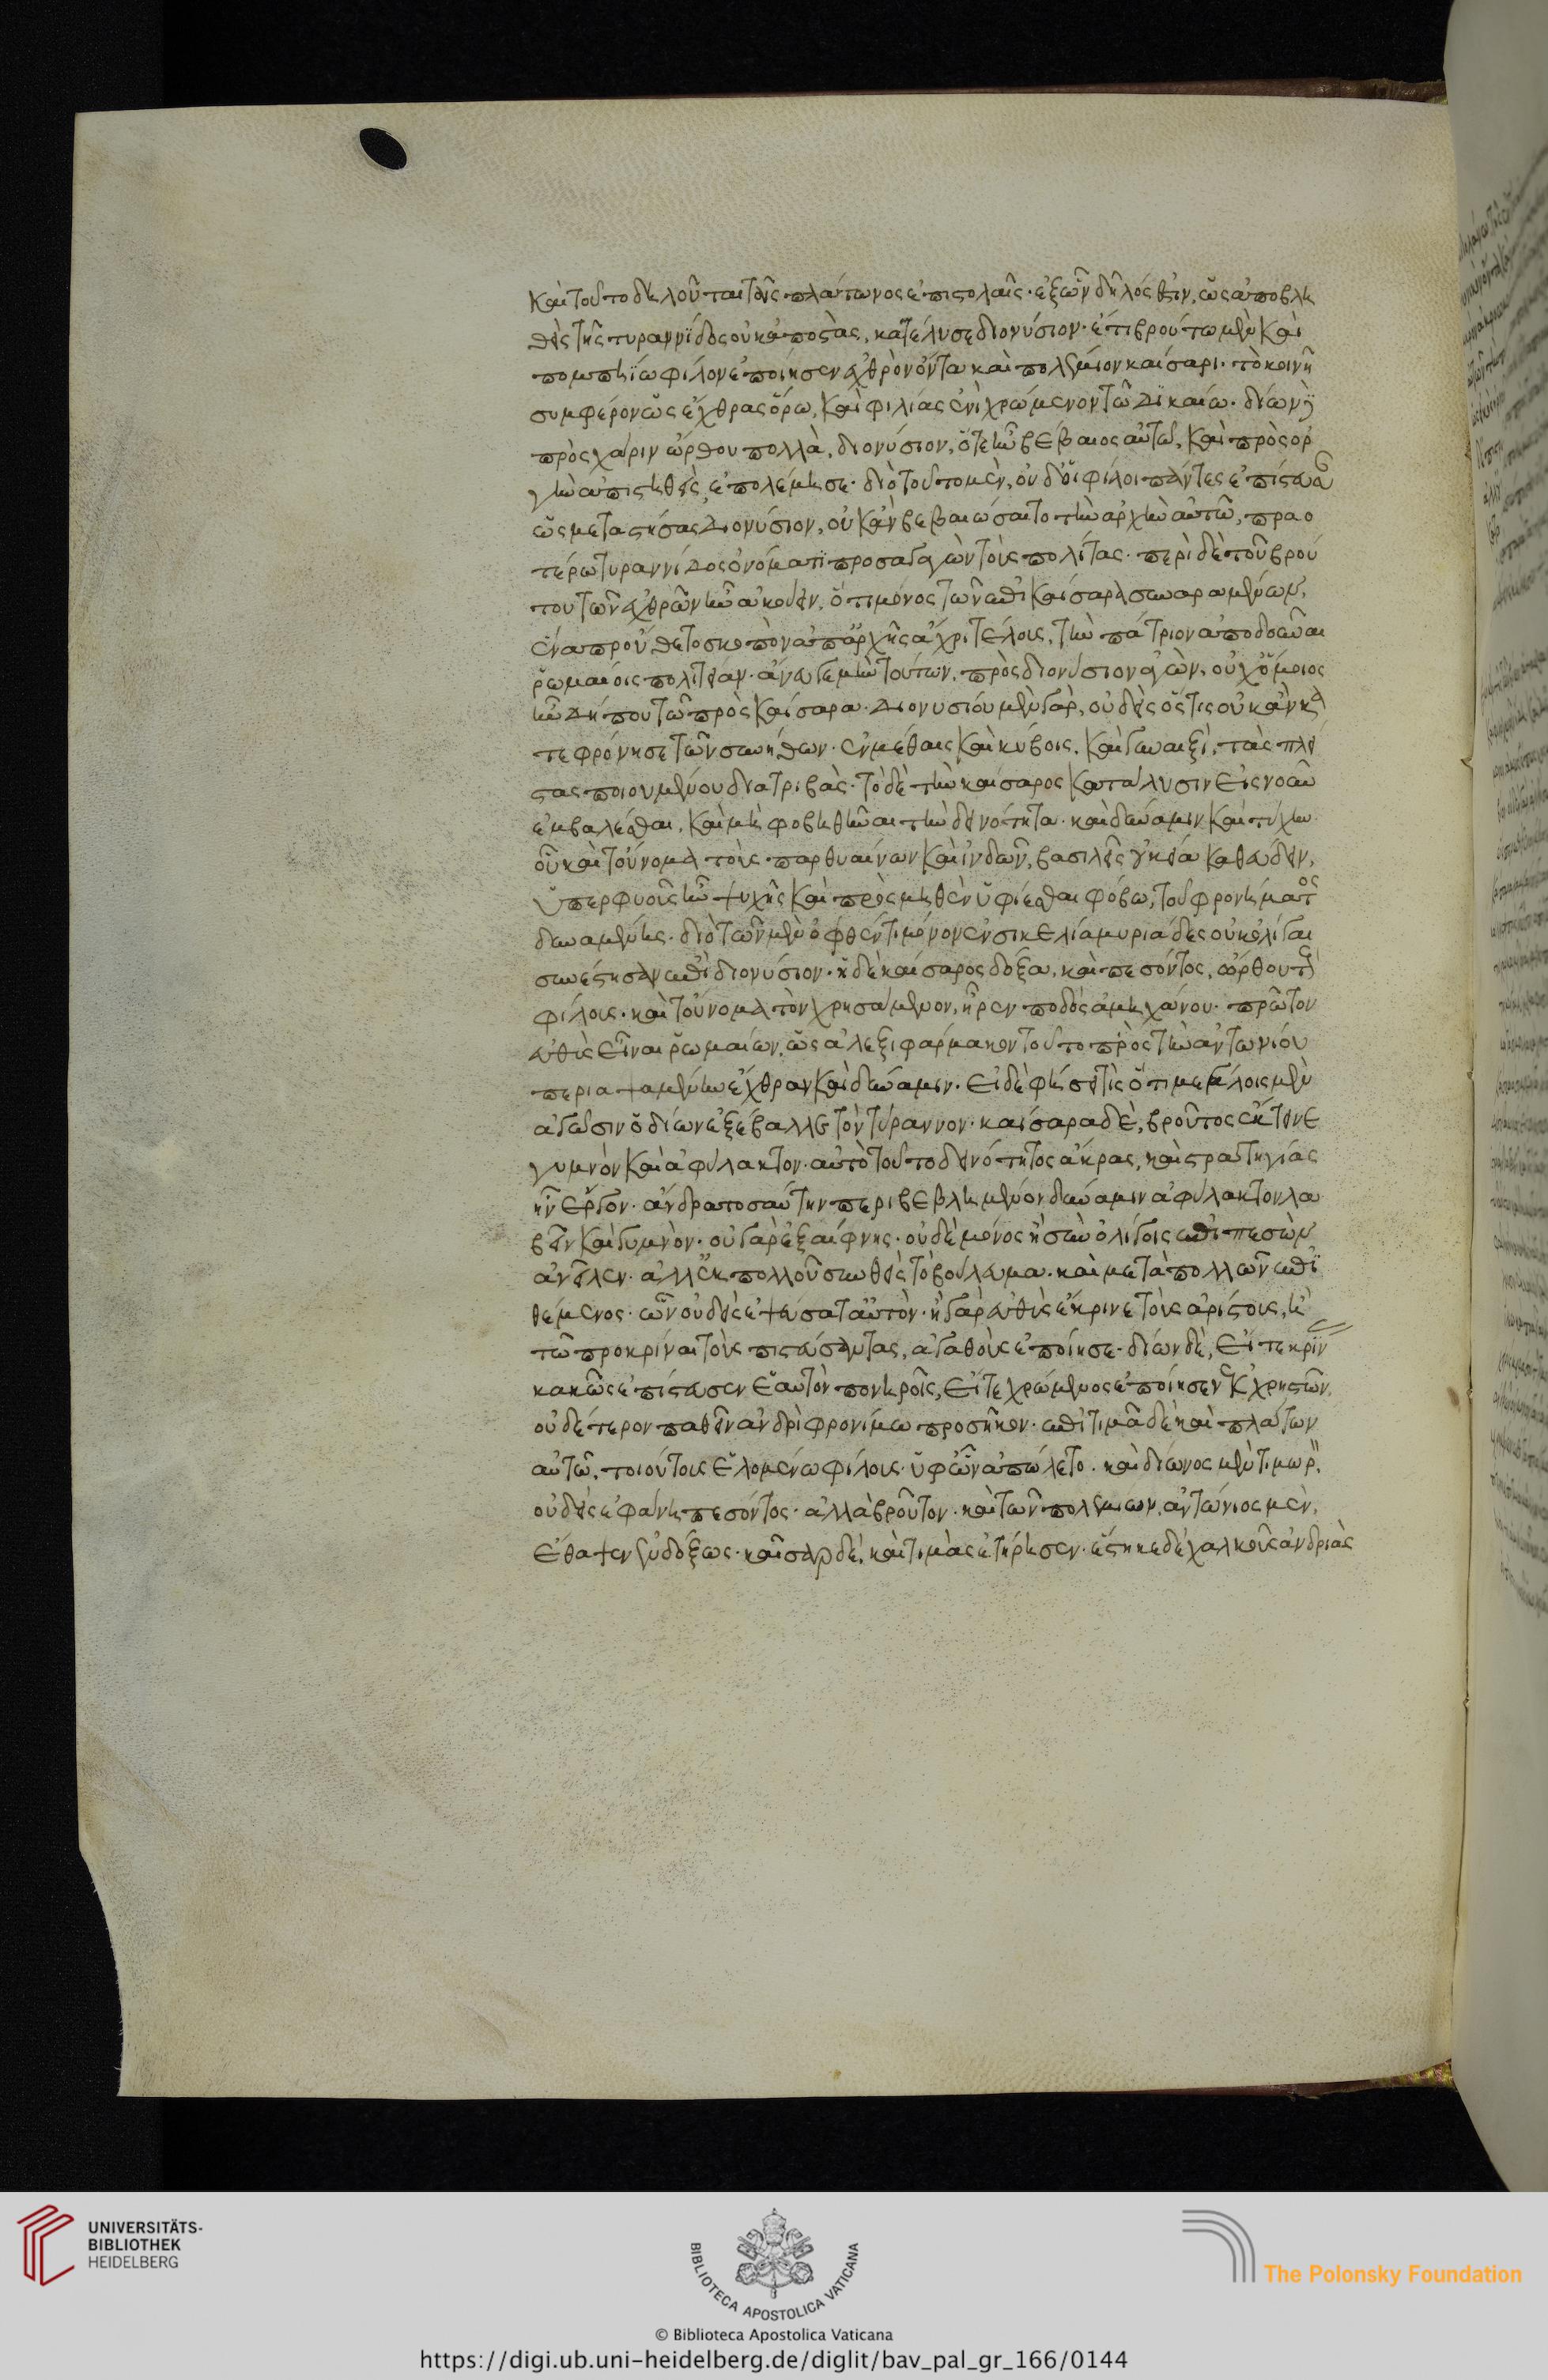 καὶ τοῦτο δηλοῦται τοῖς πλάτωνος ἐπιστολαῖς· ἐξ ὧν δῆλός ἐστιν, ὡς ἀποβλη
θεὶς τῆς τυραννίδος οὐκ ἀποστὰς, κατέλυσε διονύσιον· ἔτι βρούτω μὲν καὶ
πομπηίω φίλον ἐποίησεν ἐχθρὸν ὄντα καὶ πολέμιον καίσαρι· τὸ κοινῆ
συμφέρον ὡς ἔχθρας ὅρω, καὶ φιλίας ἑνὶ χρώμενον τῶ δικαίω· δίων δὲ
πρὸς χάριν ὤρθου πολλὰ, διονύσιον, ὅτε ἦν βέβαιος αὐτῶ, καὶ πρὸς ὀρ
γὴν ἀπιστηθεὶς ἐπολέμησε· διὸ τοῦτο μὲν, οὐδ' οἱ φίλοι πάντες ἐπίστευσαν
ὡς μεταστήσας διονύσιον, οὐκ ἂν βεβαιώσαιτο τὴν ἀρχὴν αὐτῶ, πραο
τέρω τυραννίδος ὀνόματι προσαγαγὼν τοὺς πολίτας· περὶ δὲ τοῦ βρού
του τῶν ἐχθρῶν ἦν ἀκούειν, ὅτι μόνος τῶν ἐπὶ καίσαρα συναραμένων,
ἕνα προὔθετο σκοπὸν ἀπ' ἀρχῆς ἄχρι τέλους, τὴν πάτριον ἀποδοῦναι
ῥωμαίοις πολιτείαν· ἄνευ γε μὴν τούτων, πρὸς διονύσιον ἀγὼν, οὐχ ὅμοιος
ἦν δήπου τῶ πρὸς καίσαρα· διονυσίου μὲν γὰρ, οὐδεὶς ὅστις οὐκ ἂν κα
τεφρόνησε τῶν συνήθων· ἐν μέθαις καὶ κύβοις, καὶ γυναιξὶ, τὰς πλεί
στας ποιουμένου διατριβάς· τὸ δὲ τὴν καίσαρος κατάλυσιν εἰς νοῦν
ἐμβαλέσθαι, καὶ μὴ φοβηθῆναι τὴν δεινότητα· καὶ δύναμιν καὶ τύχην
οὗ καὶ τοὔνομα τοὺς παρθυαίων καὶ ἰνδῶν, βασιλεῖς οὐκ εἴα καθεύδειν,
ὑπερφυοῦς ἦν ψυχῆς καὶ πρὸς μηθὲν ὑφίεσθαι φόβω, τοῦ φρονήματος
δυναμένης· διὸ τῶ μὲν ὀφθέντι μόνον ἐν σικελία μυριάδες οὐκ ὀλίγαι
συνέστησαν ἐπὶ διονύσιον· ἡ δὲ καίσαρος δόξα, καὶ πεσόντος, ὤρθου τοὺς
φίλους· καὶ τοὔνομα τὸν χρησάμενον, ἦρεν ἐκ παιδὸς ἀμηχάνου· πρῶτον
εὐθὺς εἶναι ῥωμαίων, ὡς ἀλεξιφάρμακον τοῦτο πρὸς τὴν ἀντωνίου
περιαψαμένω ἔχθραν καὶ δύναμιν· εἰ δὲ φήσει τὶς ὅτι μεγάλοις μὲν
ἀγῶσιν ὁ δίων ἐξέβαλλε τὸν τύραννον· καίσαρα δὲ, βροῦτος ἔκτεινε
γυμνὸν καὶ ἀφύλακτον· αὐτὸ τοῦτο δεινότητος ἄκρας, καὶ στρατηγίας
ἦν ἔργον· ἄνδρα τοσαύτην περιβεβλημένον δύναμιν ἀφύλακτον λα
βεῖν καὶ γυμνὸν· οὐ γὰρ ἐξαίφνης· οὐδὲ μόνος ἢ σὺν ὀλίγοις ἐπιπεσὼν
ἀνεῖλεν· ἀλλ' ἐκ πολλοῦ συνθεὶς τὸ βούλευμα· καὶ μετὰ πολλῶν ἐπι
θέμενος· ὧν οὐδεὶς ἐψεύσατ' αὐτὸν· ἢ γὰρ εὐθὺς ἔκρινε τοὺς ἀρίστους, ἢ
τῶ προκρίναι τοὺς πιστεύσαντας, ἀγαθοὺς ἐποίησε· δίων δὲ, εἴτε κρίν
κακῶς ἐπίστευσεν ἑαυτὸν πονηροῖς, εἴτε χρώμενος ἐποίησεν ἐκ χρηστῶν,
οὐδέτερον παθεῖν ἀνδρὶ φρονίμω προσῆκον· ἐπιτιμᾶ δὲ καὶ πλάτων
αὐτῶ, τοιούτους ἑλομένω φίλους· ὑφ' ὧν ἀπώλετο· καὶ δίωνος μὲν τιμωρ
οὐδεὶς ἐφάνη πεσόντος· ἀλλὰ βροῦτον· καὶ τῶν πολεμίων, ἀντώνιος μὲν,
ἔθαψεν ἐνδόξως· καῖσαρ δὲ, καὶ τιμὰς ἐτήρησεν· ἕστηκε δὲ χαλκοῦς ἀνδριὰς
UNIVERSITÄTS-
BIBLIOTHEK
HEIDELBERG
BIBLIOTECA APOSTOLICA VATICANA
© Biblioteca Apostolica Vaticana
The Polonsky Foundation
https://digi.ub.uni-heidelberg.de/diglit/bav_pal_gr_166/0144